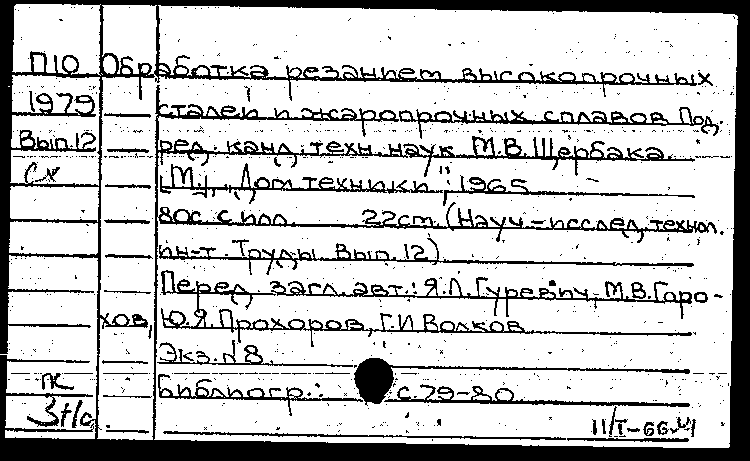 П10 Обработка резанием высокопрочных
1979 сталей и жаропрочных сплавов Под.
Вып.12 ред. канд. техн. наук М.В.Щербака.
[М.], "Дом техники", 1965
80с. с илл. 22см. (Науч.-исслед. технол.
ин-т. Труды. Вып. 12)
Перед загл. авт.: Я.Л.Гуревич, М.В.Горо-
хов, Ю.Я.Прохоров, Г.И.Волков
Экз.№8.
пк Библиогр.: с.79-80
II/Т-66